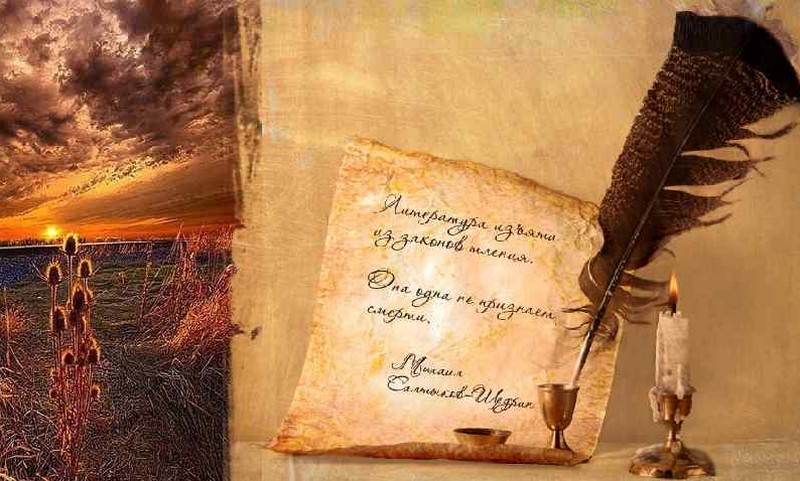 Литература изъята
из законов тления.
Она одна не признает
смерти.
Михаил
Салтыков-Щедрин